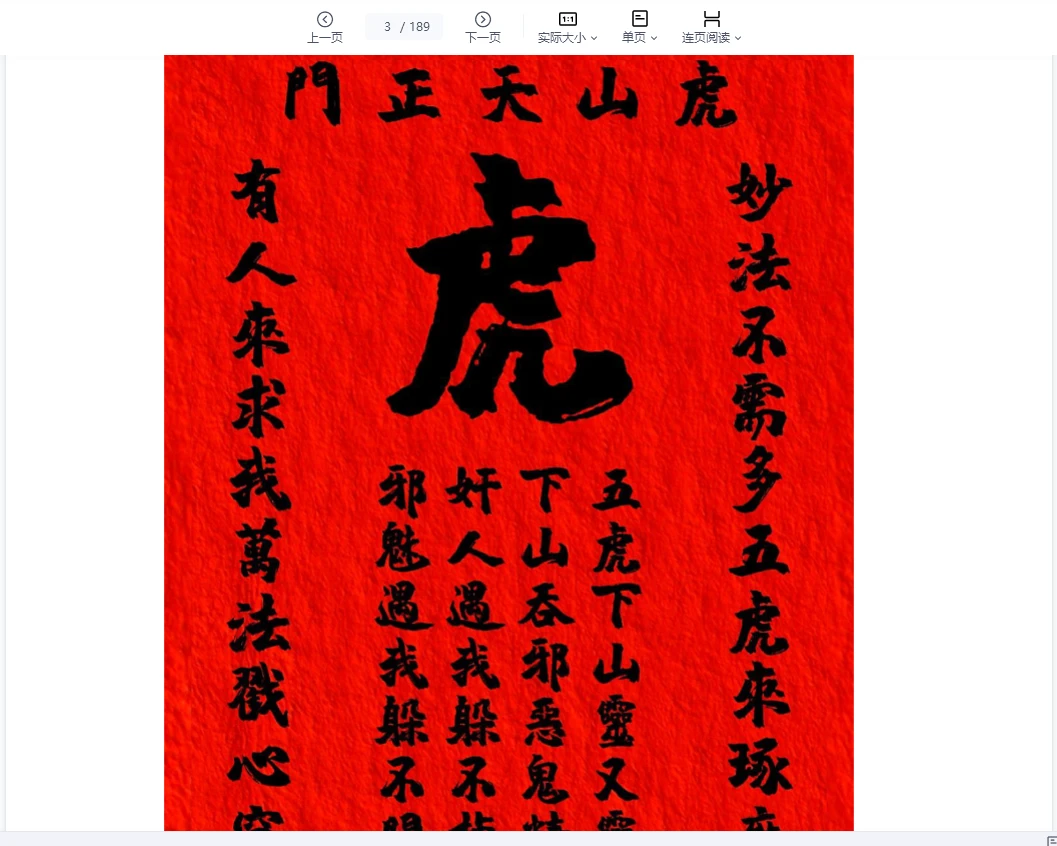 上一页
3 / 189
下一页
1:1
实际大小
单页
连页阅读
虎山天正門
虎
妙法不需多五虎來琢
有人來求我萬法戳心
五虎下山靈又靈
下山吞邪惡鬼精
奸人遇我躲不
邪魅遇我躲不